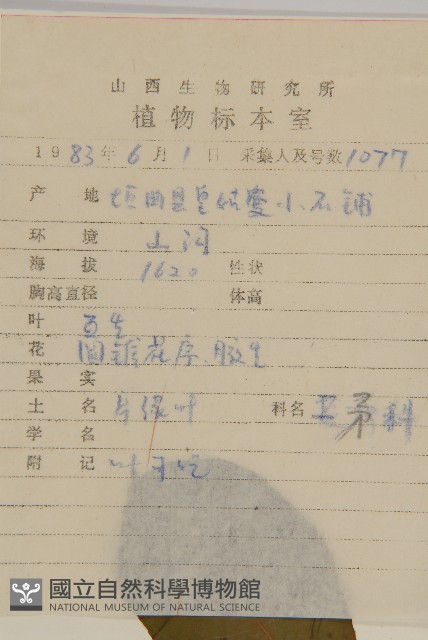 山西生物研究所
植物标本室
1983年6月1日 采集人及号数1077
产地 垣曲县皇姑曼小石铺
环境 山沟
海拔 1620 性状
胸高直径 体高
叶 互生
花 圆锥花序.腋生
果实
土名 科名 卫矛科
学名
附记 叶可吃
國立自然科學博物館
NATIONAL MUSEUM OF NATURAL SCIENCE